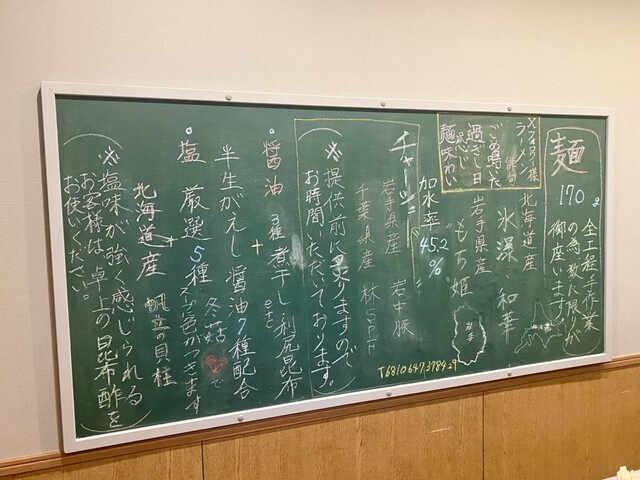 麺 170g
全工程手作業
の為、数に限りが
御座います
北海道産
氷濠 和華
岩手県産
もち姫
岩手
ラーメン 俳句
ご、の暑いた
過ぎし日
麺味わい
加水率
45.2
%
チャーシュー
岩手県産 岩中豚
千葉県産 林SPF
T6810647378429
(※提供前に炙りますので
お時間いただいております。)
醤油 3種煮干し利尻昆布
+ etc
半生がえし 醤油7種配合
塩 厳選5種 冬菇で
スープに色がつきます
北海道産 帆立の貝柱
(※塩味が強く感じられる
お客様は卓上の昆布酢を
お使いください。)